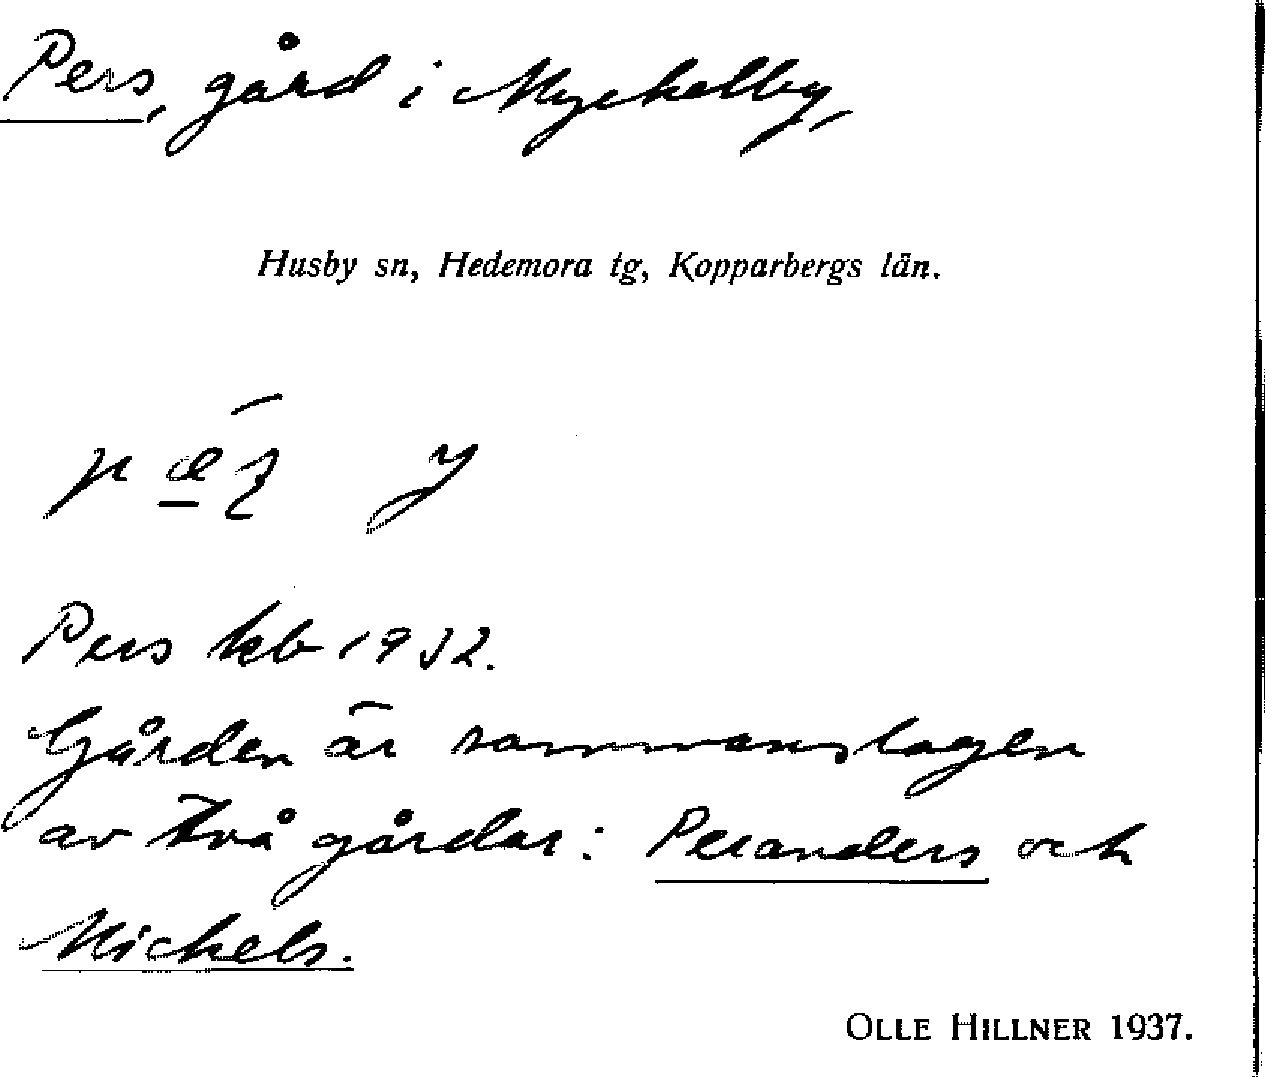 Pers, gård i Myckelby,
Husby sn, Hedemora tg, Kopparbergs län.
Pers kb 1932.
Gården är sammanslagen
av två gårdar: Peranders och
Nickels.
OLLE HILLNER 1937.